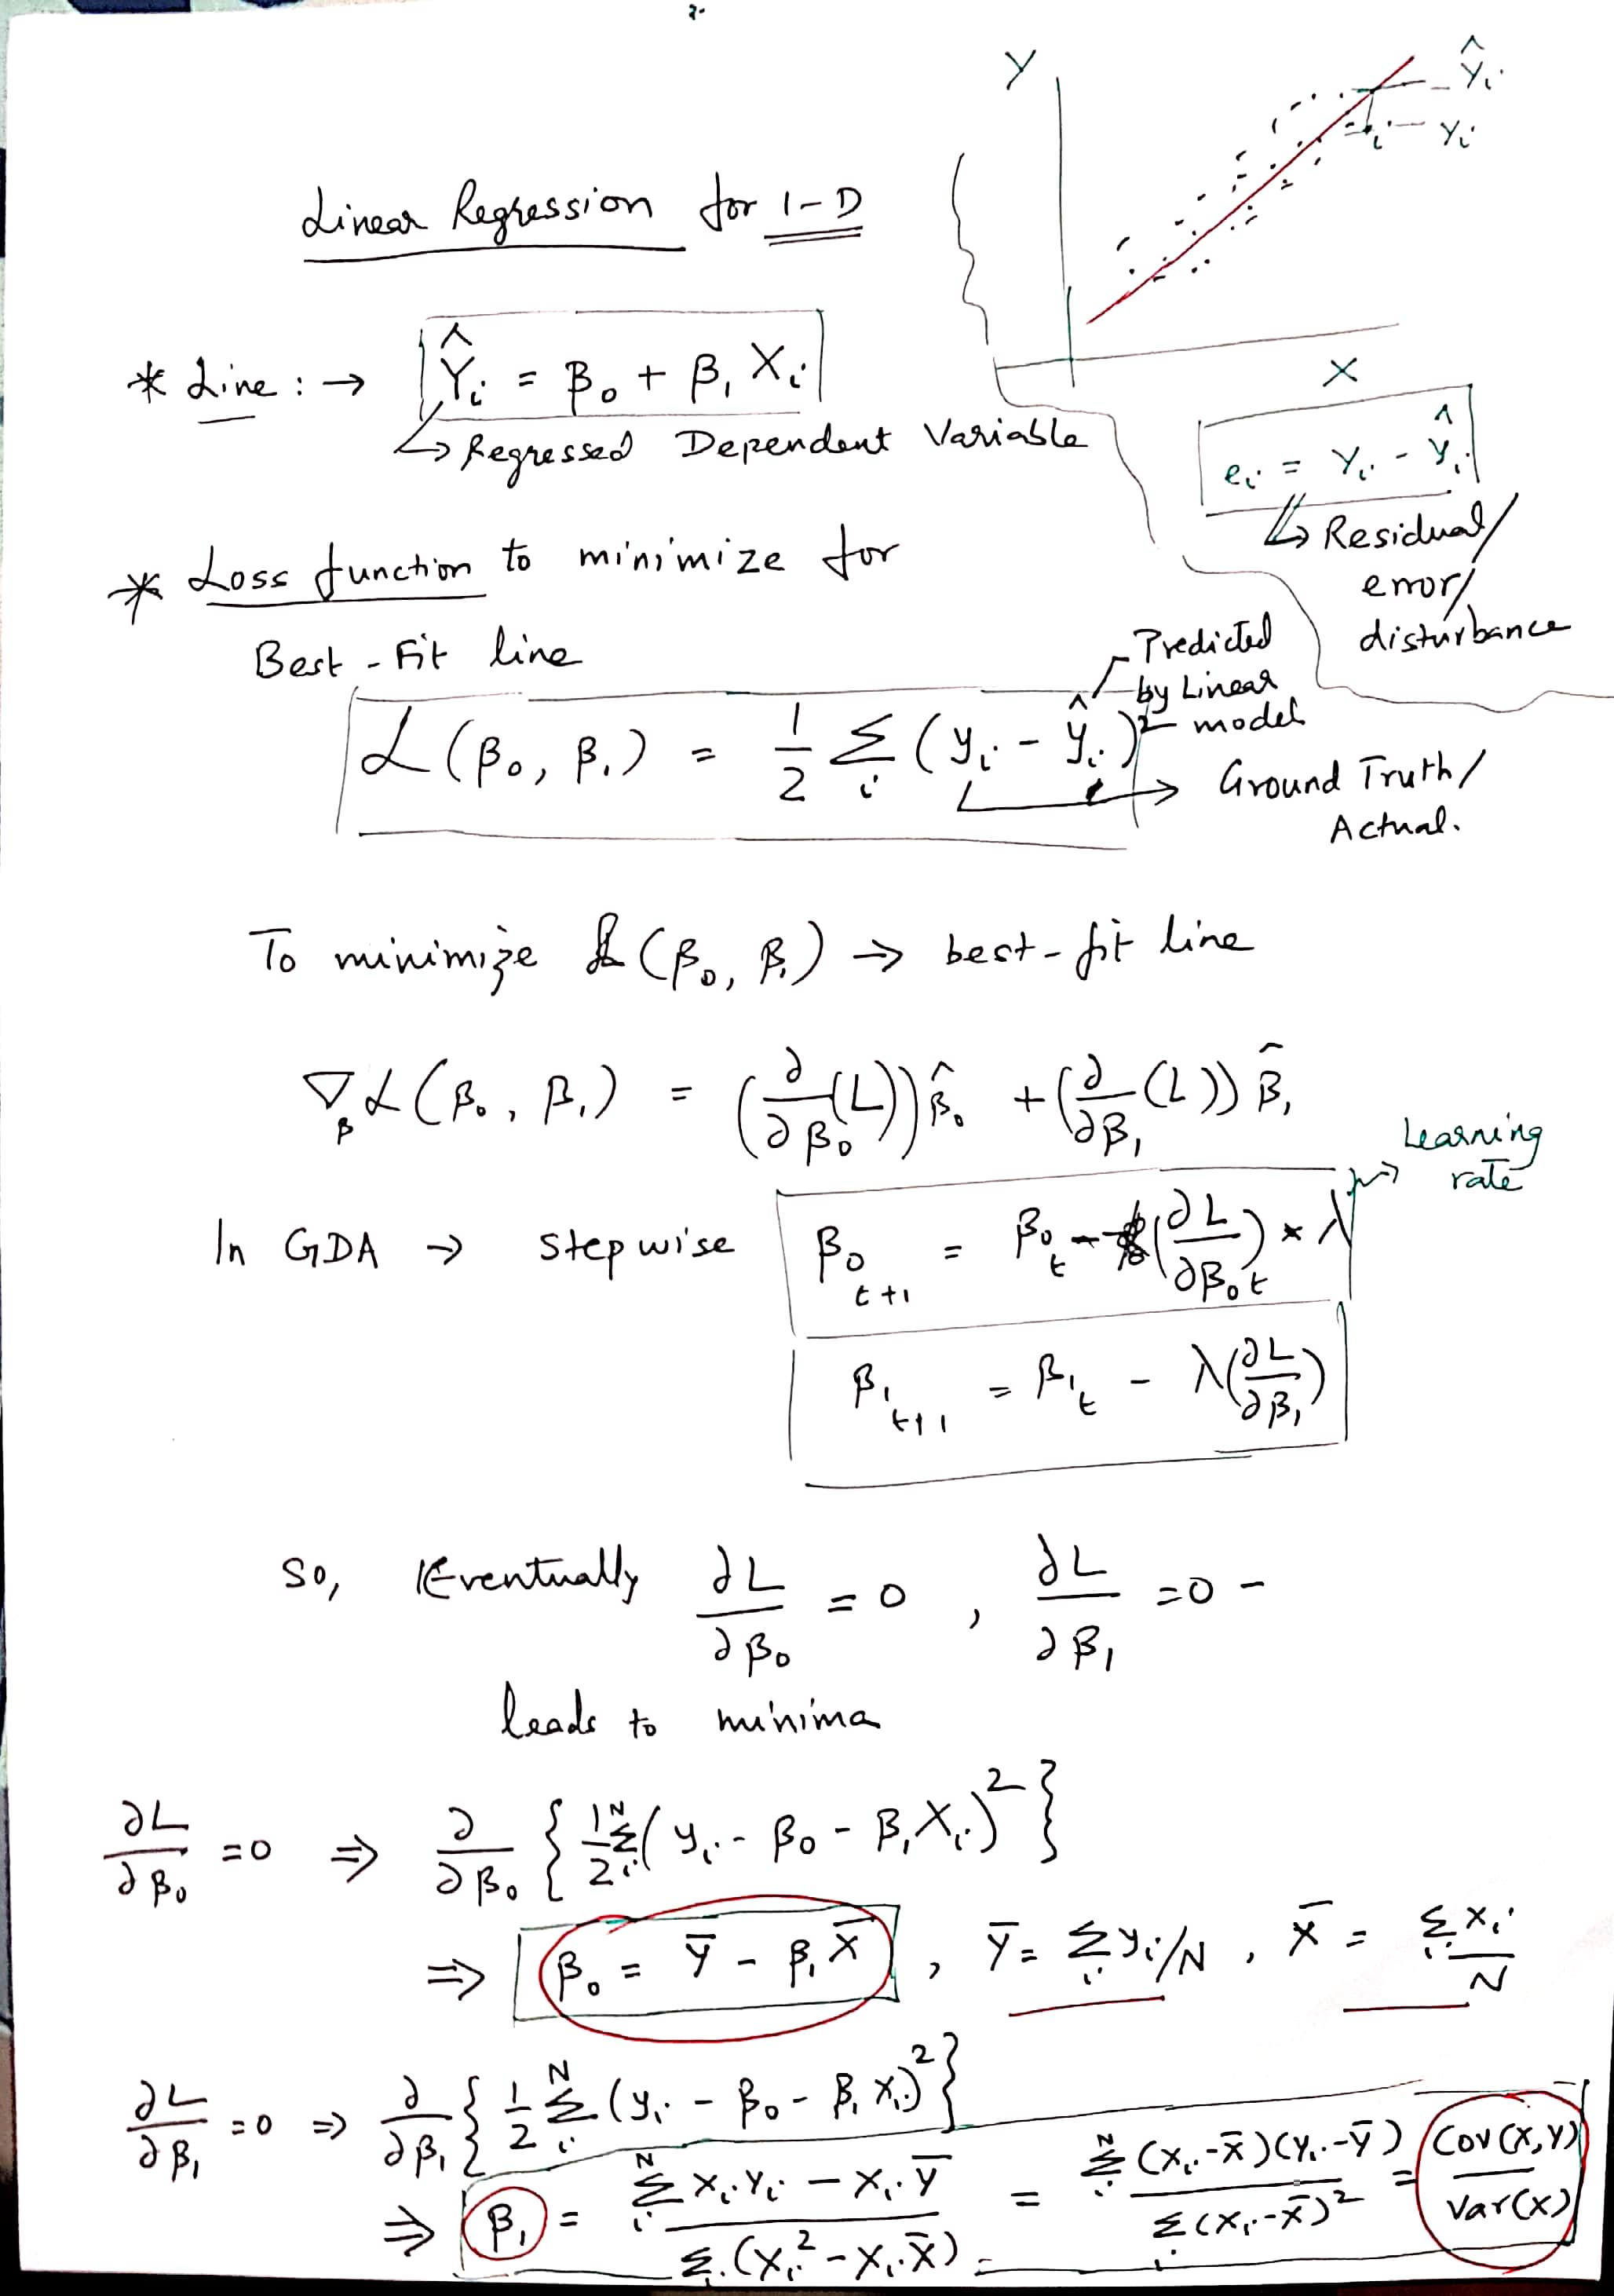 Y
Ŷᵢ
Yᵢ
X
Linear Regression for 1-D
* Line : → Ŷᵢ = β₀ + β₁ Xᵢ
↳ Regressed Dependent Variable
eᵢ = Yᵢ - Ŷᵢ
↳ Residual/
error/
disturbance
* Loss function to minimize for
Best-Fit line
Predicted
by Linear
model
L(β₀, β₁) = 1/2 Σᵢ (yᵢ - ŷᵢ)²
→ Ground Truth/
Actual.
To minimize L(β₀, β₁) → best-fit line
∇_β L(β₀, β₁) = (∂/∂β₀ (L)) β̂₀ + (∂/∂β₁ (L)) β̂₁
Learning
rate
In GDA → stepwise β₀ₜ₊₁ = β₀ₜ - (∂L/∂β₀ₜ) * λ
β₁ₜ₊₁ = β₁ₜ - λ(∂L/∂β₁)
So, Eventually ∂L/∂β₀ = 0 , ∂L/∂β₁ = 0 -
leads to minima
∂L/∂β₀ = 0 ⇒ ∂/∂β₀ { 1/2 Σᵢᴺ (yᵢ - β₀ - β₁Xᵢ)² }
⇒ β₀ = Ȳ - β₁X̄ , Ȳ = Σᵢ yᵢ/N , X̄ = Σᵢ Xᵢ/N
∂L/∂β₁ = 0 ⇒ ∂/∂β₁ { 1/2 Σᵢᴺ (yᵢ - β₀ - β₁Xᵢ)² }
⇒ β₁ = Σᵢᴺ XᵢYᵢ - XᵢȲ / Σᵢ (Xᵢ² - XᵢX̄) = Σᵢᴺ (Xᵢ-X̄)(Yᵢ-Ȳ) / Σᵢ (Xᵢ-X̄)² = Cov(X,Y) / Var(X)